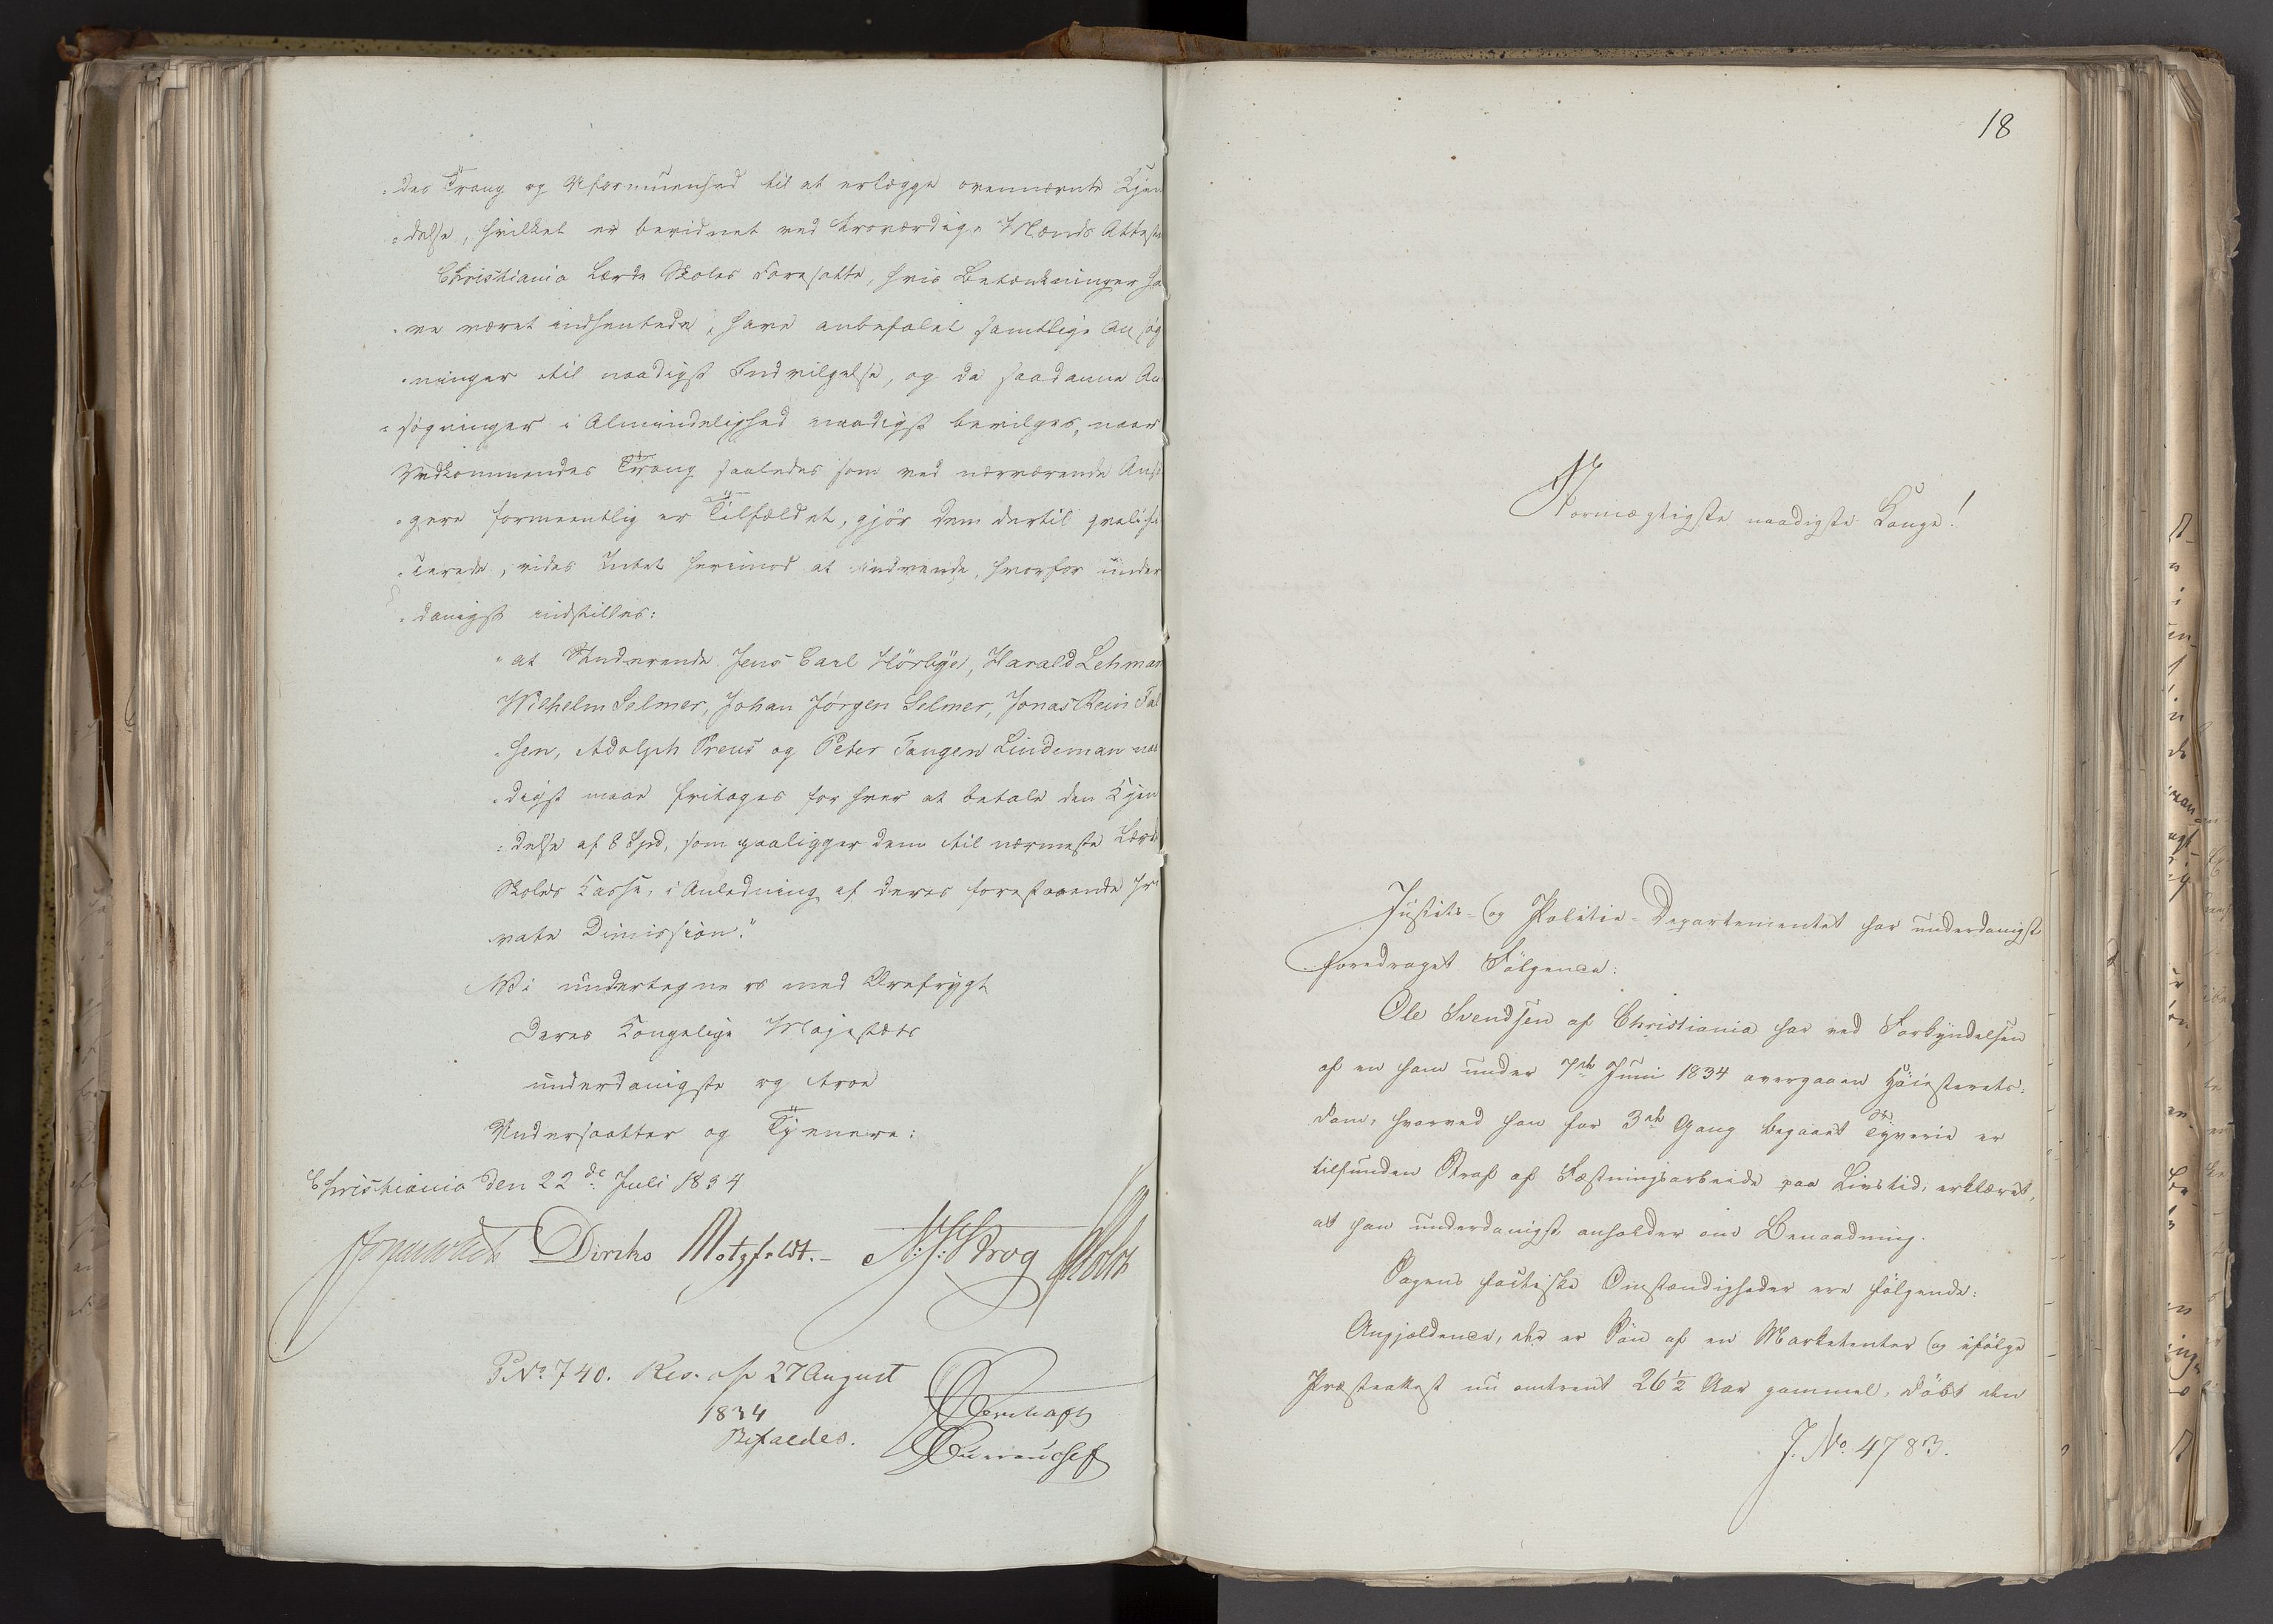 :des Trang og Uformuenhed til at erlægge ovennævnte Kjen
:delse, hvilket er bevidnet ved troværdige Mænds Attester
Christiania Lærde Skoles Foresatte, hvis Betænkninger ha
:ve været indhentede, have anbefalet samtlige Ansøg
:ninger til naadigst Indvilgelse, og da saadanne An
:søgninger i Almindelighed naadigst bevilges, naar
Vedkommendes Trang saaledes som ved nærværende Ansø
:gere formeentlig er Tilfældet, gjør dem dertil qvalifi
:cerede, vides Intet herimod at indvende, hvorfor under
:danigst indstilles:
"at Studerende Jens Carl Hörbye, Harald Lehman
Wilhelm Selmer, Johan Jørgen Selmer, Jonas Rein Fal
:sen, Adolph Preus og Peter Tangen Lindeman naa
:digst maae fritages for hver at betale den Kjen
:delse af 8 Spd, som paaligger dem til nærmeste Lærde
Skoles Kasse, i Anledning af deres forestaaende pri
vate Dimission."
Vi undertegne os med Ærefrygt
Deres Kongelige Majestæts
underdanigste og troe
Undersaatter og Tjenere:
Christiania den 22de Juli 1834
Diriks Motzfeldt. N: J: Krog Holst
P No. 740. Res. af 27 August
1834
Bifaldes.
18
Stormægtigste naadigste Konge!
Justits- og Politie-Departementet har underdanigst
foredraget Følgende:
Ole Svendsen af Christiania har ved Forkyndelsen
af en ham under 7de Juni 1834 overgaaen Höiesterets:
dom, hvorved han for 3die Gang begaaet Tyverie er
tilfunden Straf af Fæstningsarbeide paa Livstid, erklæret,
at han underdanigst anholder om Benaadning.
Sagens factiske Omstændigheder ere følgende:
Angjældende, der er Sön af en Marketenter og ifölge
Præsteattest nu omtrent 26½ Aar gammel, döbt den
J. No. 4783.